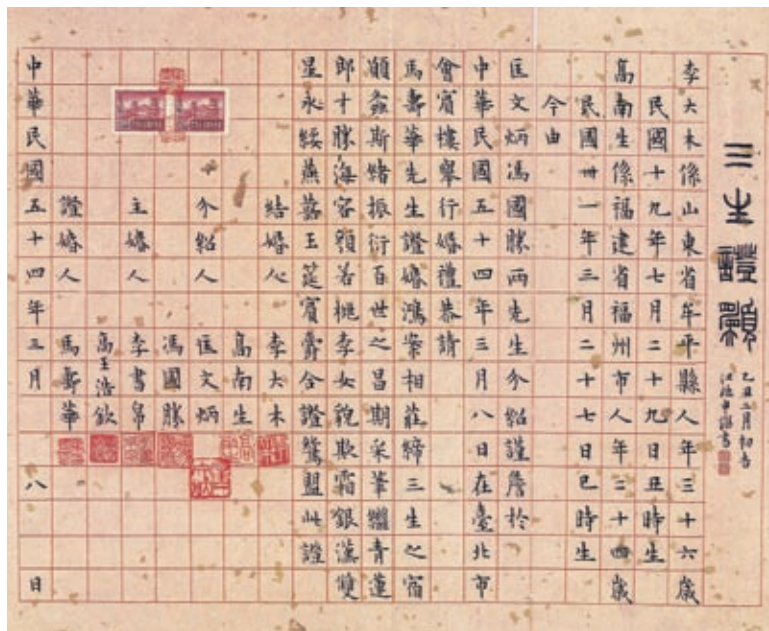 三生證願
二月初吉
李大木係山東省牟平縣人年三十六歲
民國十九年七月二十九日丑時生
高南生係福建省福州市人年二十四歲
民國卅一年三月二十七日巳時生
今由
匡文炳馮國勝兩先生介紹謹詹於
中華民國五十四年三月八日在臺北市
會賓樓舉行婚禮恭請
馬壽華先生證婚鴻案相莊締三生之宿
願螽斯緒振衍百世之昌期采筆繼青蓮
郎才勝海容顏若桃李女貌欺霜銀漢雙
星永綏燕喜玉筵賓仝證鴛盟此證
結婚人 李大木
高南生
介紹人 匡文炳
馮國勝
主婚人 李書帛
高王浩欽
證婚人 馬壽華
中華民國五十四年三月八日